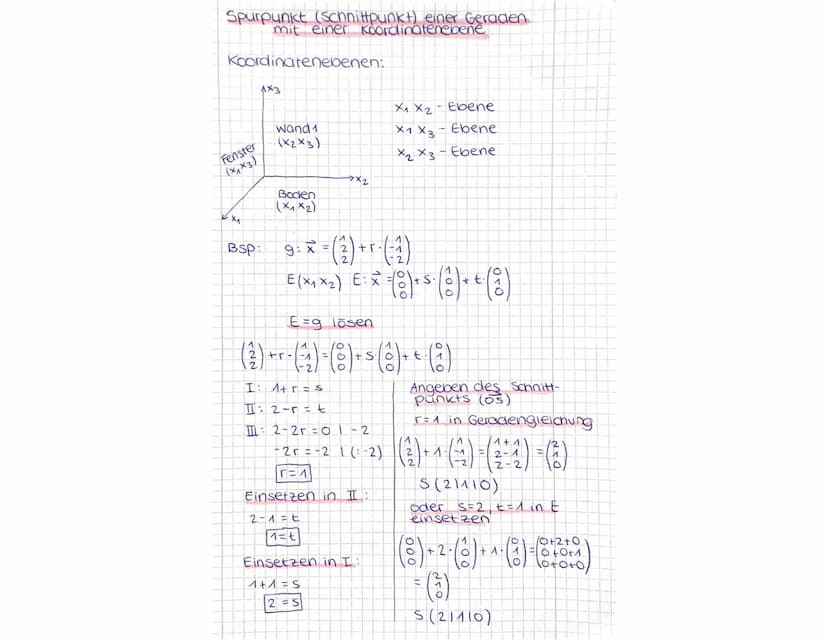 Spurpunkt (Schnittpunkt) einer Geraden
mit einer Koordinatenebene
Koordinatenebenen:
x₃
Wand1
(x₂x₃)
Fenster
(x₁x₃)
x₂
Boden
(x₁x₂)
x₁
x₁ x₂ - Ebene
x₁ x₃ - Ebene
x₂ x₃ - Ebene
Bsp: g: x⃗ = (1 2 2) + r · (1 -1 -2)
E(x₁x₂) E: x⃗ = (0 0 0) + s · (1 0 0) + t · (0 1 0)
E = g lösen
(1 2 2) + r · (1 -1 -2) = (0 0 0) + s · (1 0 0) + t · (0 1 0)
I: 1+r = s
II: 2-r = t
III: 2-2r = 0 | -2
-2r = -2 | (:-2)
r = 1
Einsetzen in II:
2-1 = t
1 = t
Einsetzen in I:
1+1 = s
2 = s
Angeben des Schnitt-
punkts (0S⃗)
r=1 in Geradengleichung
(1 2 2) + 1 · (1 -1 -2) = (1+1 2-1 2-2) = (2 1 0)
S (2|1|0)
oder s=2, t=1 in E
einsetzen
(0 0 0) + 2 · (1 0 0) + 1 · (0 1 0) = (0+2+0 0+0+1 0+0+0)
= (2 1 0)
S (2|1|0)